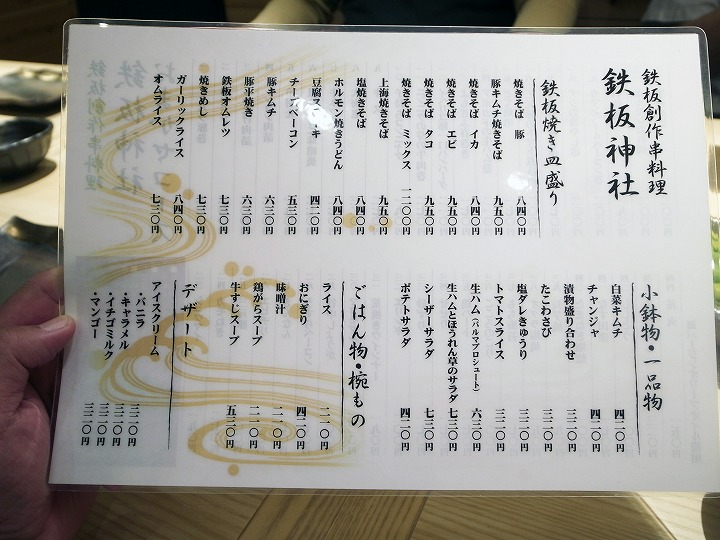 鉄板創作串料理
鉄板神社
鉄板焼き皿盛り
焼きそば 豚 八四〇円
豚キムチ焼きそば 九五〇円
焼きそば イカ 八四〇円
焼きそば エビ 九五〇円
焼きそば タコ 九五〇円
焼きそば ミックス 一二〇〇円
上海焼きそば 九五〇円
塩焼きそば 八四〇円
ホルモン焼きうどん 八四〇円
豆腐ステーキ 四二〇円
チーズベーコン 五三〇円
豚キムチ 六三〇円
豚平焼き 六三〇円
鉄板オムレツ 七三〇円
焼きめし 七三〇円
ガーリックライス 八四〇円
オムライス 七三〇円
小鉢物・一品物
白菜キムチ 四二〇円
チャンジャ 四二〇円
漬物盛り合わせ 三二〇円
たこわさび 三二〇円
塩ダレきゅうり 三二〇円
トマトスライス 三二〇円
生ハム（パルマプロシュート） 六三〇円
生ハムとほうれん草のサラダ 七三〇円
シーザーサラダ 七三〇円
ポテトサラダ 四二〇円
ごはん物・椀もの
ライス 二一〇円
おにぎり 四二〇円
味噌汁 二一〇円
鶏がらスープ 二一〇円
牛すじスープ 五三〇円
デザート
アイスクリーム
・バニラ 三二〇円
・キャラメル 三二〇円
・イチゴミルク 三二〇円
・マンゴー 三二〇円